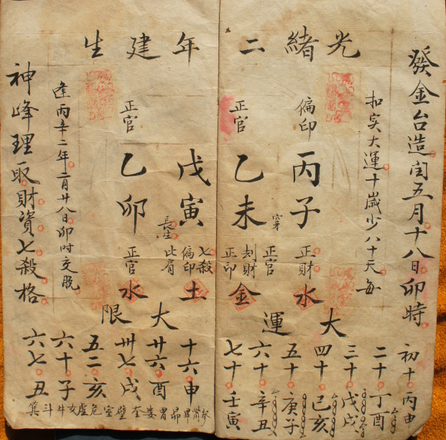 光緒二年建生
發金台造閏五月十八日卯時
扣实大运十歲少八十天每
偏印
丙子
正財水
正官
乙未
正官
刦財
正印
金
戊寅
長生
七殺
偏印
比肩
土
正官
乙卯
正官水
逢丙辛二年二月廿八日卯时交脱
神峰理取財資七殺格
大運
初十丙申
二十丁酉
三十戊戌
四十己亥
五十庚子
六十辛丑
七十壬寅
大限
十六申
廿六酉
卅七戌
五二亥
六十子
六七丑